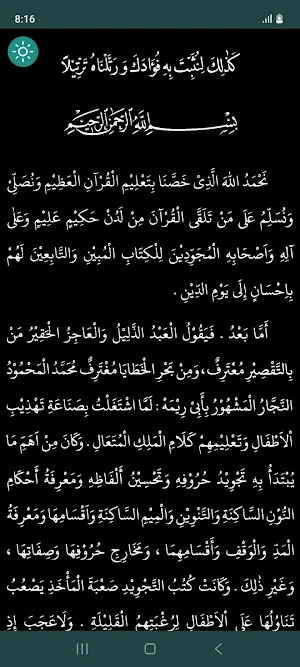 8:16
كَذٰلِكَ لِنُثَبِّتَ بِهِ فُؤَادَكَ وَرَتَّلْنَاهُ تَرْتِيْلًا
بِسْمِ اللهِ الرَّحْمٰنِ الرَّحِيْمِ
نَحْمَدُ اللهَ الَّذِىْ خَصَّنَا بِتَعْلِيْمِ الْقُرْآنِ الْعَظِيْمِ وَنُصَلِّىْ
وَنُسَلِّمُ عَلَى مَنْ تَلَقَّى الْقُرْآنَ مِنْ لَدُنْ حَكِيْمٍ عَلِيْمٍ وَعَلٰى
آلِهِ وَاَصْحَابِهِ الْمُجَوِّدِيْنَ لِلْكِتَابِ الْمُبِيْنِ وَالتَّابِعِيْنَ لَهُمْ
بِاِحْسَانٍ إِلَى يَوْمِ الدِّيْنِ .
أَمَّا بَعْدُ . فَيَقُوْلُ الْعَبْدُ الذَّلِيْلُ وَالْعَاجِزُ الْحَقِيْرُ مَنْ
بِالتَّقْصِيْرِ مُعْتَرِفٌ، وَمِنْ بَحْرِ الْخَطَايَا مُغْتَرِفٌ مُحَمَّدُ الْمَحْمُوْدُ
النَّجَّارُ الْمَشْهُوْرُ بِأَبِىْ رِيْمَةْ : لَمَّا اشْتَغَلْتُ بِصَنَاعَةِ تَهْذِيْبِ
الْاَطْفَالِ وَتَعْلِيْمِهِمْ كَلَامِ الْمَلِكِ الْمُتَعَالِ . وَكَانَ مِنْ اَهَمِّ مَا
يُبْتَدَأُ بِهِ تَجْوِيْدُ حُرُوْفِهِ وَتَحْسِيْنُ أَلْفَاظِهِ وَمَعْرِفَةُ أَحْكَامِ
النُّوْنِ السَّاكِنَةِ وَالتَّنْوِيْنِ وَالْمِيْمِ السَّاكِنَةِ وَاَقْسَامِهَا وَمَعْرِفَةُ
الْمَدِّ وَالْوَقْفِ وَأَقْسَامِهِمَا ، وَمَخَارِجِ حُرُوْفِهَا وَصِفَاتِهَا ،
وَغَيْرِ ذٰلِكَ . وَكَانَتْ كُتُبُ التَّجْوِيْدِ صَعْبَةَ الْمَأْخَذِ يَصْعُبُ
تَنَاوُلُهَا عَلَى الْاَطْفَالِ لِرُغْبَتِهِمُ الْقَلِيْلَةِ . وَلَا عَجَبَ إِذْ